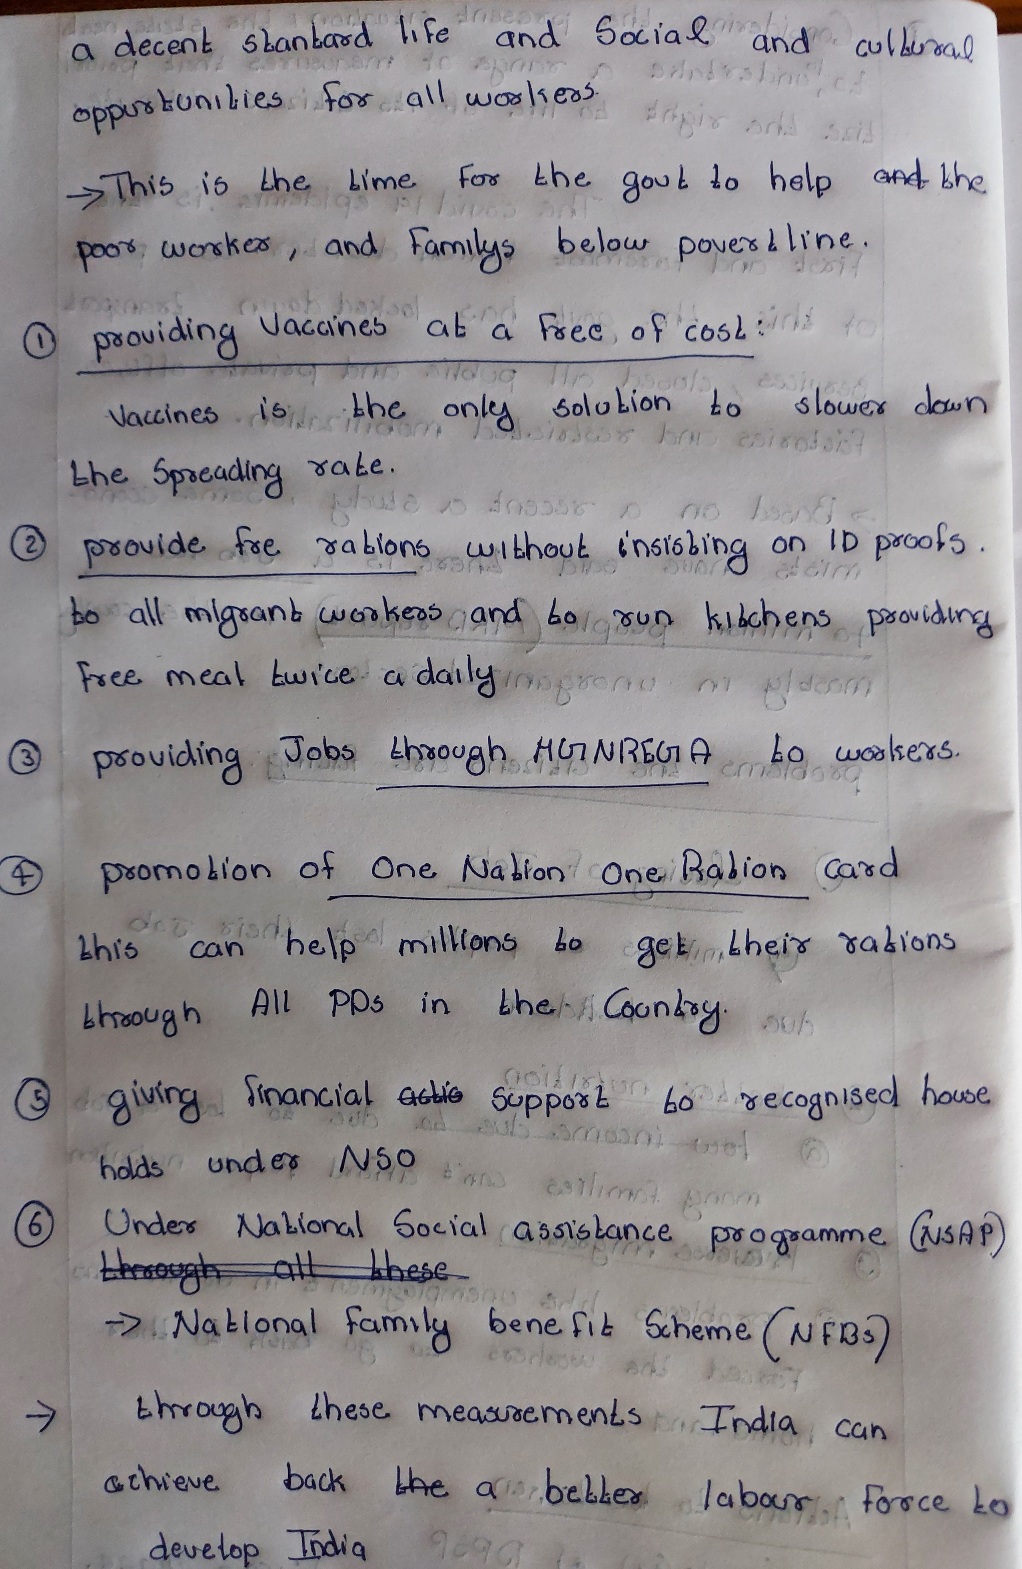 a decent stantard life and Social and cultural
oppurtunities for all workers.
→ This is the time for the govt to help and the
poor worker, and Familys below povertline.
① providing Vaccines at a free of cost:
Vaccines is the only solution to slower down
the Spreading rate.
② provide fre rations without insisting on ID proofs.
to all migrant workers and to run kitchens providing
free meal twice a daily
③ providing Jobs through MGNREGA to workers.
④ promotion of One Nation One Ration Card
this can help millions to get their rations
through All PDs in the Country.
⑤ giving financial actio support to recognised house
holds under NSO
⑥ Under National Social assistance programme (NSAP)
through all these
→ National family benefit Scheme (NFBS)
→ through these measurements India can
achieve back the a better labour force to
develop India